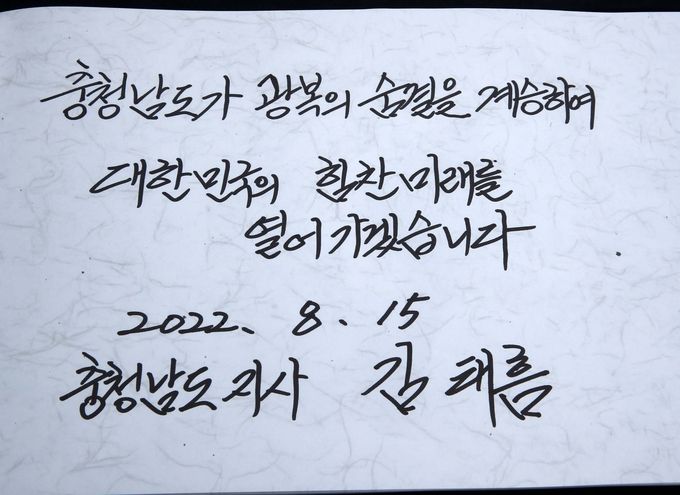 충청남도가 광복의 숨결을 계승하여
대한민국의 힘찬 미래를
열어가겠습니다
2022. 8. 15
충청남도지사 김태흠